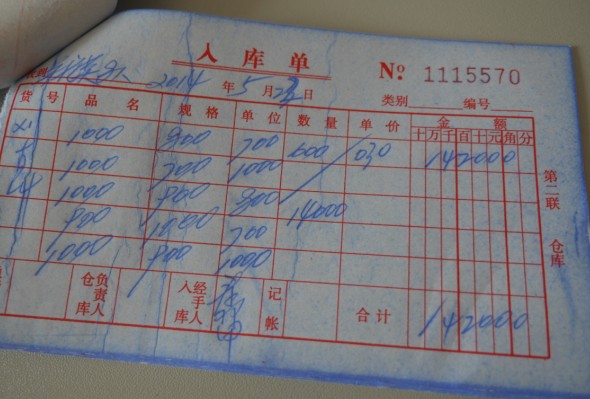 入库单
№ 1115570
2014 年 5 月 日
类别 编号
货号 品名 规格 单位 数量 单价 金额
十万千百十元角分
1000 800 700 600 030 142000
1000 700 1000
1000 800 800 14000
800 1000 700
1000 800 1000
仓库负责人 入库经手人 记帐 合计 142000
第二联 仓库